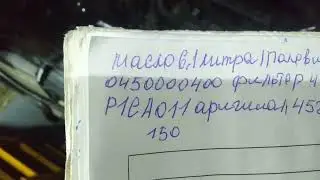 масло 6,1 литра
0450000400 фильтр 4
P1CA011 оригинал 452
150